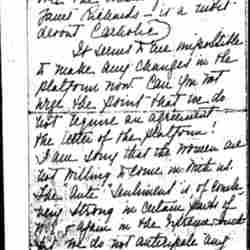 James Richards – is a most
devout Catholic)
It seems to me impossible
to make any changes in the
platform now. Can you not
urge the point that we do
not require an agreement
the letter of the platform!
I am sorry that the women are
not willing to come in with us.
The "Anti" sentiment is, of course
very strong in certain parts of
again in the
we do not anticipate any